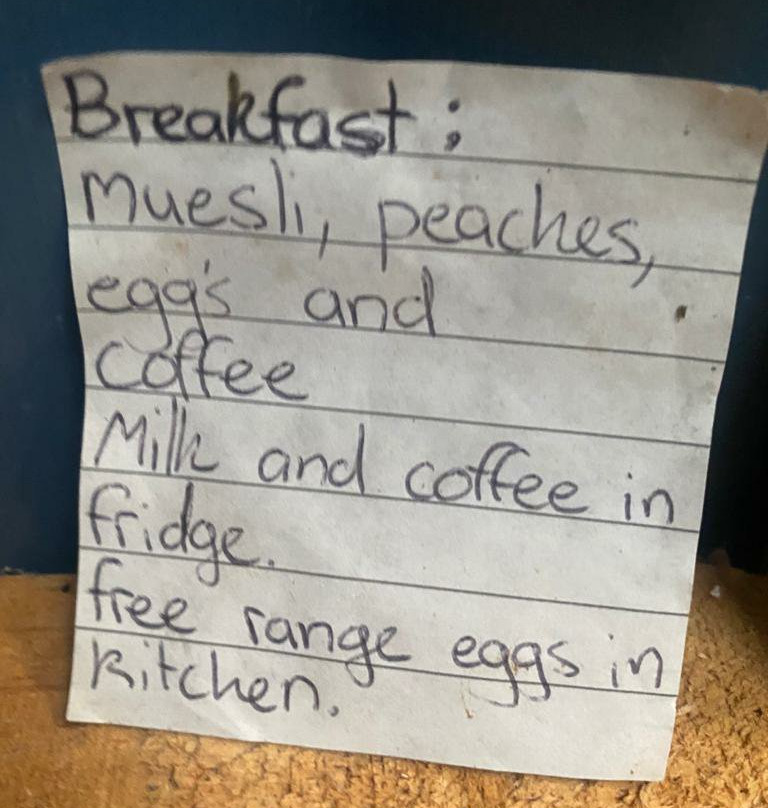 Breakfast:
Muesli, peaches,
egg's and
coffee
Milk and coffee in
fridge.
free range eggs in
kitchen.